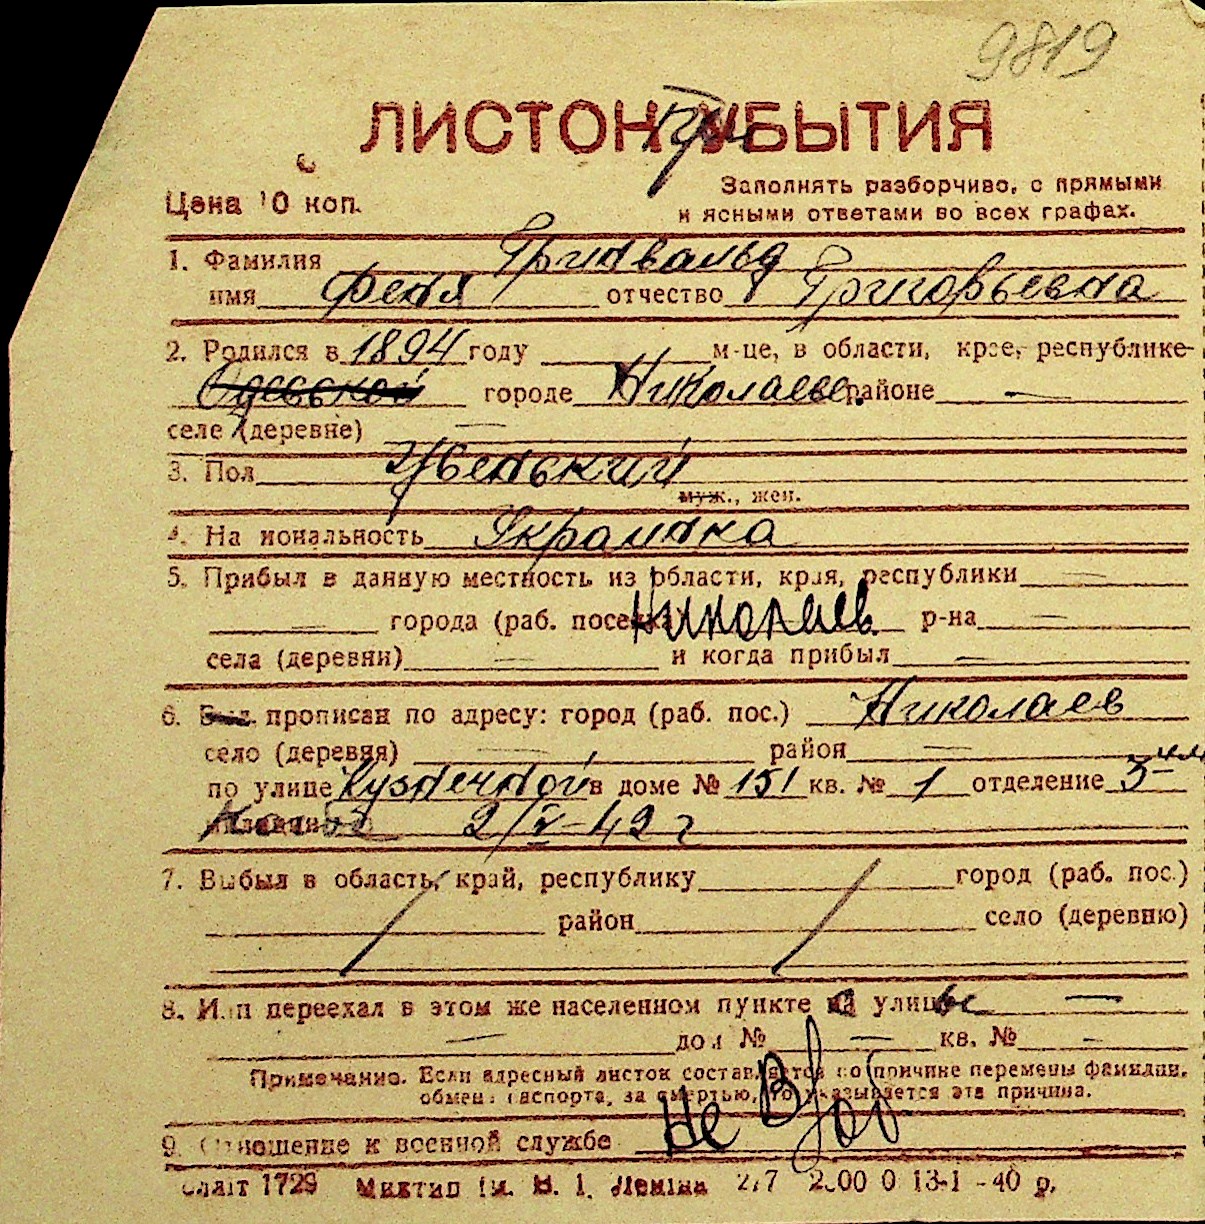 9819
ЛИСТОК УБЫТИЯ
При
Цена 10 коп.
Заполнять разборчиво, с прямыми
и ясными ответами во всех графах.
1. Фамилия Гринвальд
имя Феня отчество Григорьевна
2. Родился в 1894 году м-це, в области, крае, республике
Одесской городе Николаеве районе —
селе (деревне) —
3. Пол Женский
муж., жен.
4. Национальность Украинка
5. Прибыл в данную местность из области, края, республики —
— города (раб. поселка) Николаев р-на —
села (деревни) — и когда прибыл —
6. Был прописан по адресу: город (раб. пос.) Николаев
село (деревня) — район —
по улице Кузнечной в доме № 151 кв. № 1 отделение 3
милиции 2/V-42 г
7. Выбыл в область, край, республику город (раб. пос.)
район село (деревню)
8. Или переехал в этом же населенном пункте на улицу —
— дом № — кв. № -
Примечание. Если адресный листок составляется по причине перемены фамилии,
обмена паспорта, за смертью, то указывается эта причина.
9. Отношение к военной службе Не В/об
1729 Миктип ім. В. І. Леніна 2.00 0 13-1-40 р.